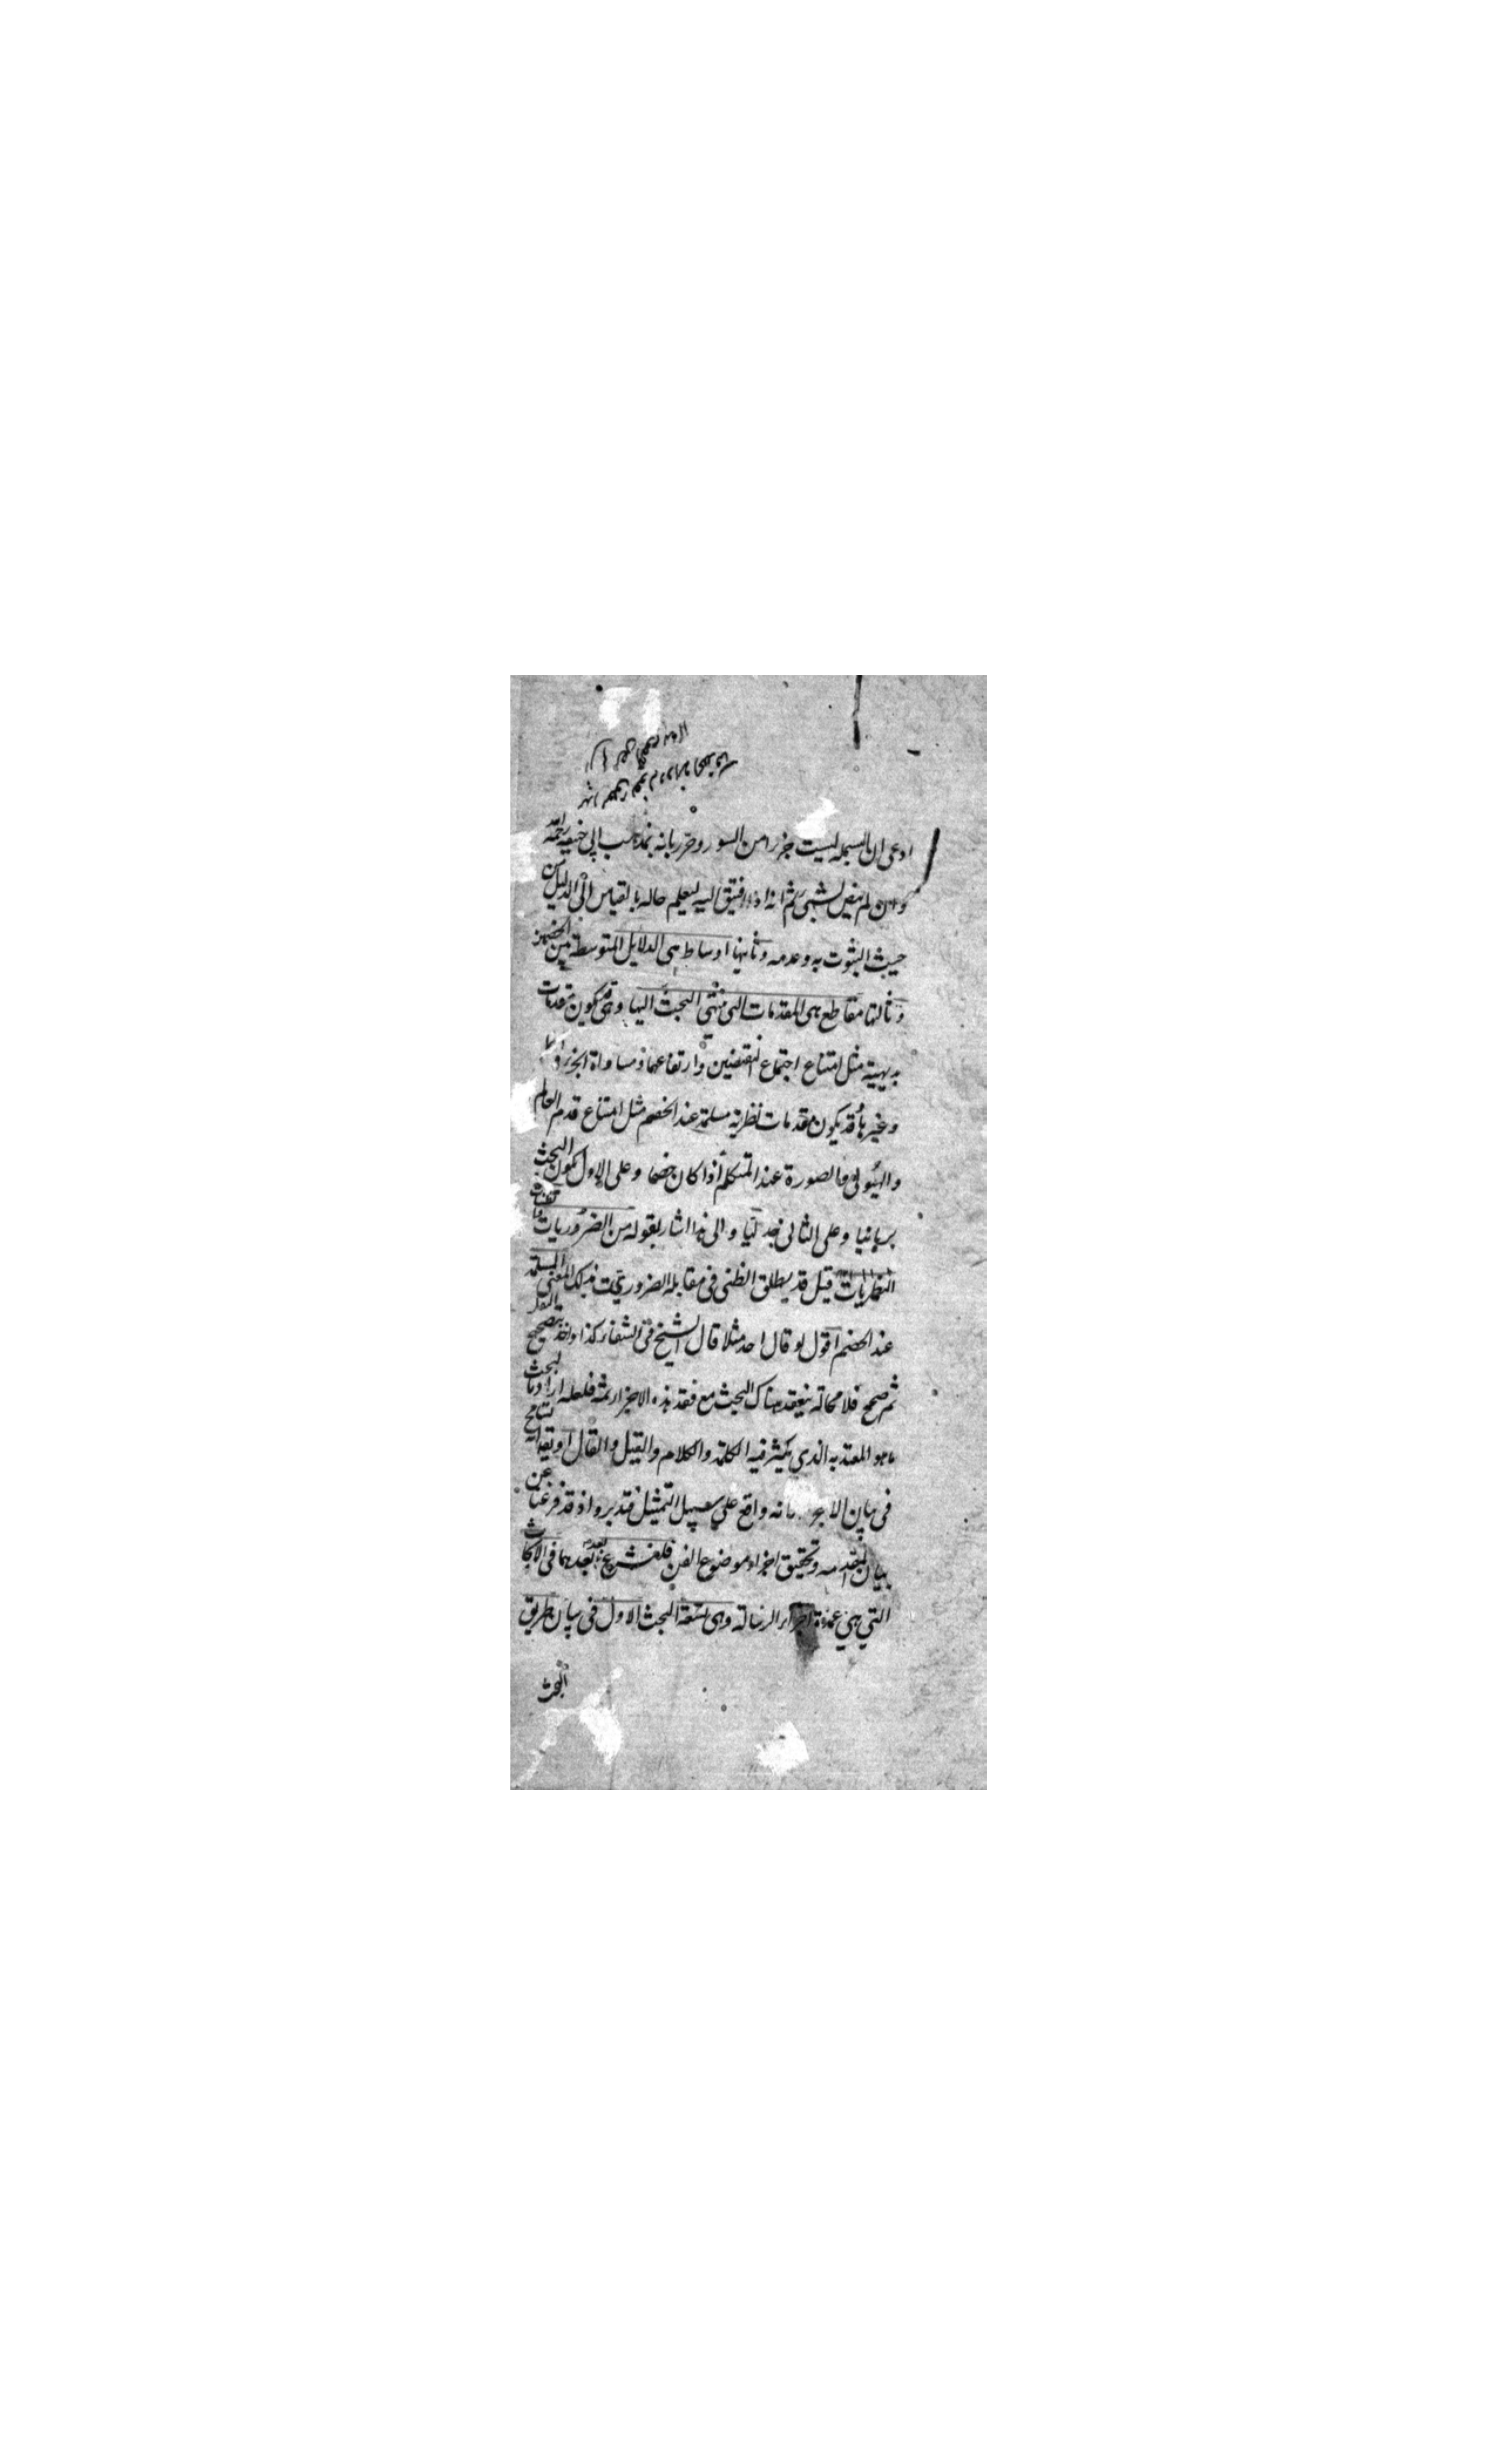 ادعى ان البسملة ليست جزءا من السور وحرر بانه بمذهب ابي حنيفة رحمه الله
وان لم ينص بشيء ثم انه اذا افتيق اليه ليعلم حاله بالقياس الى الدليل من
حيث الثبوت به وعدمه وثانيها اوساط هي الدلايل المتوسطة بين
وثالثها مقاطع هي المقدمات التي ينتهي البحث اليها وهي قد يكون مقدمات
بديهية مثل امتناع اجتماع النقيضين وارتفاعهما ومساواة الجزء و
وغيرها وقد يكون مقدمات نظرية مسلمة عند الخصم مثل امتناع قدم العالم
والهيولى والصورة عند المتكلم اذا كان خصما وعلى الاول يكون البحث
برهانيا وعلى الثاني جدليا والى هذا اشار بقوله من الضروريات
النظريات قيل قد يطلق الظني في مقابلة الضروري بذلك المعنى المسلمة
عند الخصم اقول لو قال احد مثلا قال الشيخ في الشفاء كذا واخذ بتصحيح النقل
ثم صحح فلا محالة ينعقد هناك البحث مع فقد هذه الاجزاء ثمة فلعله اراد بالبحث
ما هو المعتد به الذي يكثر فيه الكلمة والكلام والقيل والقال او
في بيان الا انه واقع على سبيل التمثيل فتدبر واذ قد فرغنا عن
بيان المقدمة وتحقيق اجزاء موضوع الفن فلنشرع بعدهما في الابحاث
التي هي عمدة اجزاء الرسالة وهي تسعة البحث الاول في بيان طريق
البحث